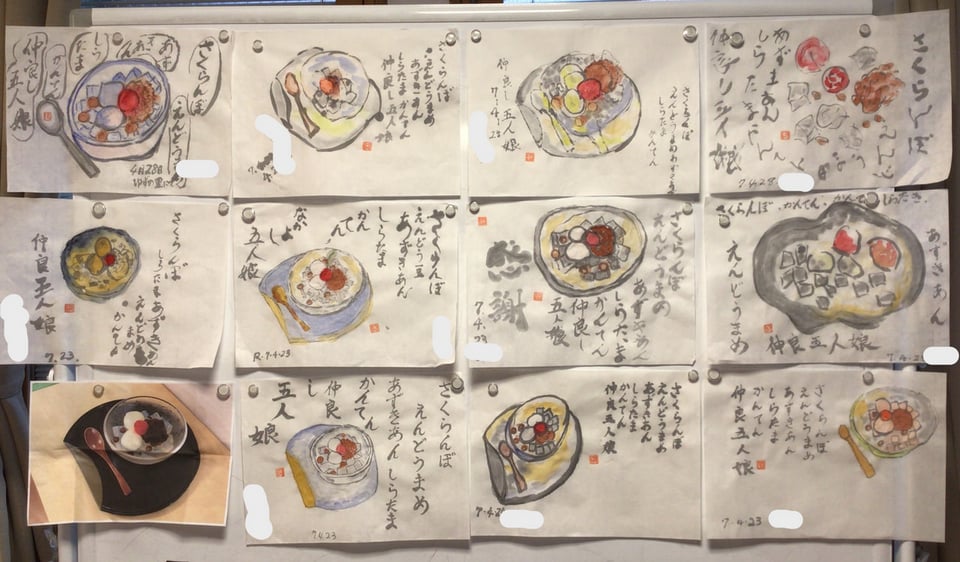 さくらんぼ
えんどう
あず
き
あん
しら
たま
かんてん
仲良し
五人
娘
4月23日
さくらんぼ
えんどうまめ
あずきあん
しらたまかんてん
仲良し五人娘
さくらんぼ
えんどうまめあずきあん
しらたま
かんてん
仲良し五人娘
7.4.23
さくらんぼ
えんどう
あずきあん
しらたま
かんてん
7.4.23
さくらんぼ
しらたまあずきあん
えんどうまめ
かんてん
仲良五人娘
7.23.
さくらんぼ
えんどう豆
あずきあん
しらたま
かん
てん
なか
よ
し
五人娘
R.7.4.23
さくらんぼ
えんどうまめ
あずきあん
しらたま
かんてん
仲良し
五人娘
感謝
7.4.
23
さくらんぼ・かんてん・
あずきあん
えんどうまめ
仲良五人娘
さくらんぼ
えんどうまめ
あずきあんしらたま
かんてん
仲良
し
五人
娘
7.4.23
さくらんぼ
えんどうまめ
あずきあん
しらたま
かんてん
仲良五人娘
さくらんぼ
えんどうまめ
あずきあん
しらたま
かんてん
仲良五人娘
7-4-23